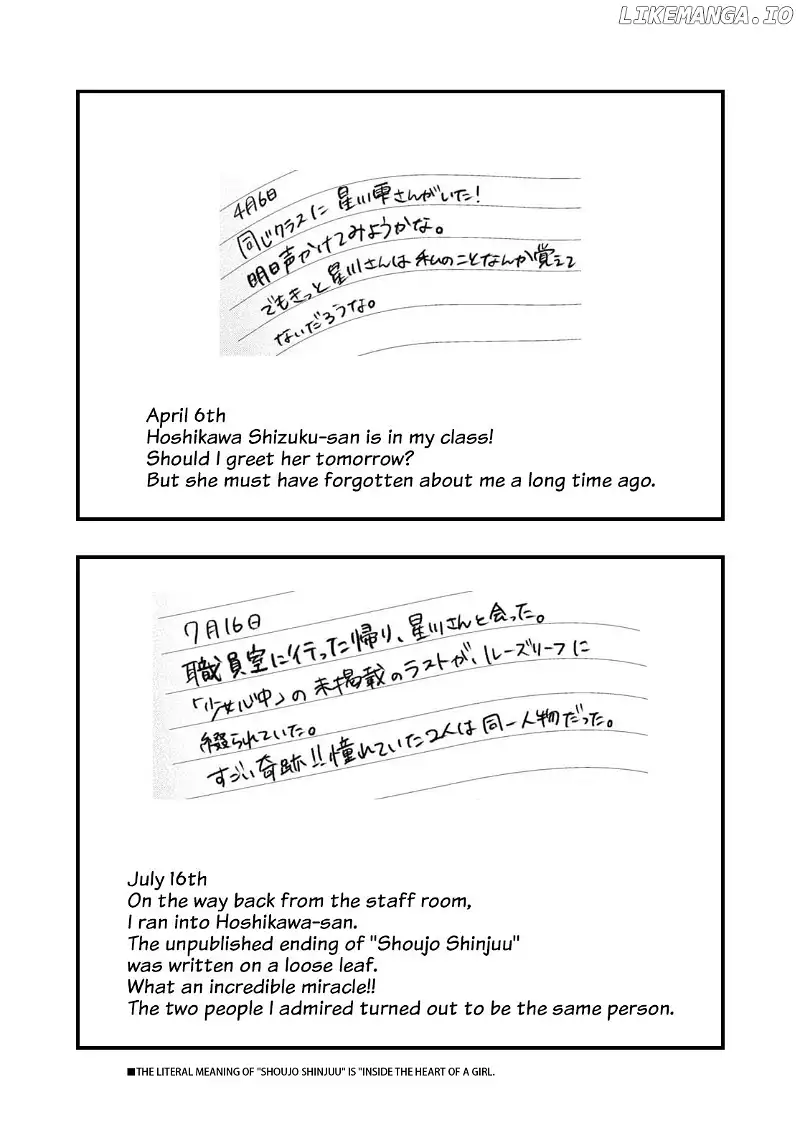 LIKEMANGA.IO
4月6日
同じクラスに星川雫さんがいた!
明日声かけてみようかな。
でもきっと星川さんは私のことなんか覚えて
ないだろうな。
April 6th
Hoshikawa Shizuku-san is in my class!
Should I greet her tomorrow?
But she must have forgotten about me a long time ago.
7月16日
職員室に行った帰り、星川さんと会った。
「少女心中」の未掲載のラストが、ルーズリーフに
綴られていた。
すごい奇跡!!憧れていた2人は同一人物だった。
July 16th
On the way back from the staff room,
I ran into Hoshikawa-san.
The unpublished ending of "Shoujo Shinjuu"
was written on a loose leaf.
What an incredible miracle!!
The two people I admired turned out to be the same person.
■THE LITERAL MEANING OF "SHOUJO SHINJUU" IS "INSIDE THE HEART OF A GIRL.